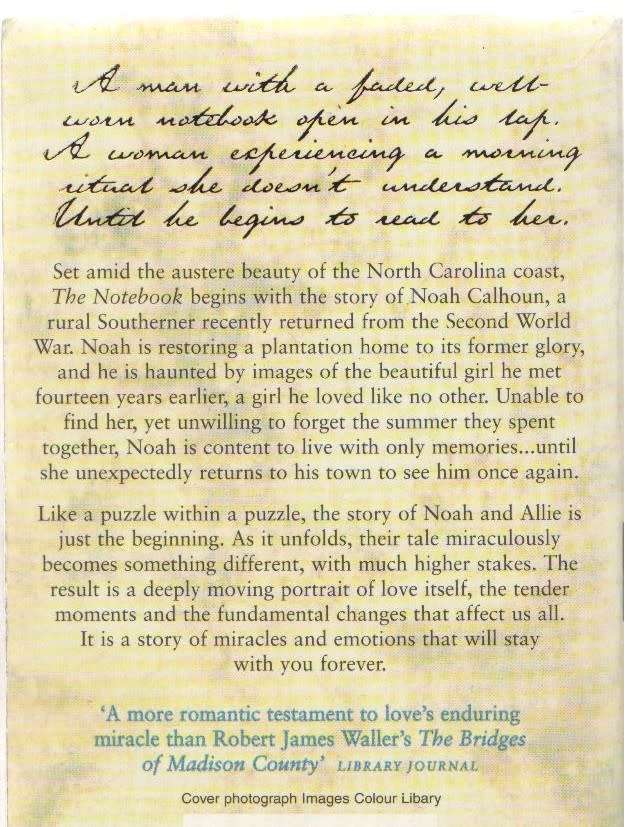 A man with a faded, well-
worn notebook open in his lap.
A woman experiencing a morning
ritual she doesn't understand.
Until he begins to read to her.
Set amid the austere beauty of the North Carolina coast,
The Notebook begins with the story of Noah Calhoun, a
rural Southerner recently returned from the Second World
War. Noah is restoring a plantation home to its former glory,
and he is haunted by images of the beautiful girl he met
fourteen years earlier, a girl he loved like no other. Unable to
find her, yet unwilling to forget the summer they spent
together, Noah is content to live with only memories...until
she unexpectedly returns to his town to see him once again.
Like a puzzle within a puzzle, the story of Noah and Allie is
just the beginning. As it unfolds, their tale miraculously
becomes something different, with much higher stakes. The
result is a deeply moving portrait of love itself, the tender
moments and the fundamental changes that affect us all.
It is a story of miracles and emotions that will stay
with you forever.
‘A more romantic testament to love’s enduring
miracle than Robert James Waller’s The Bridges
of Madison County’ LIBRARY JOURNAL
Cover photograph Images Colour Libary